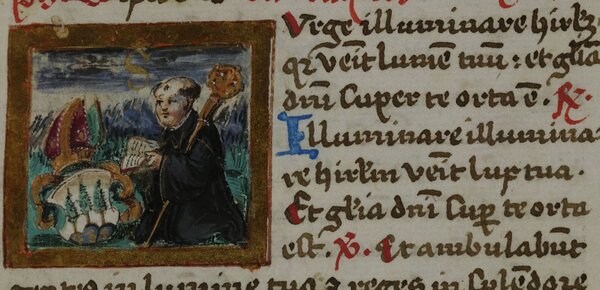 Surge illuminare hirlm
qr veīt lumē tuū : et glīa
dn̄i super te orta ē . ℟.
Illuminare illumina
re hirl̄m veīt lux tua .
Et glīa dn̄i sup̄ te orta
est . ℣. Et ambulabūt
gentes in lumine tuo et reges in splendore